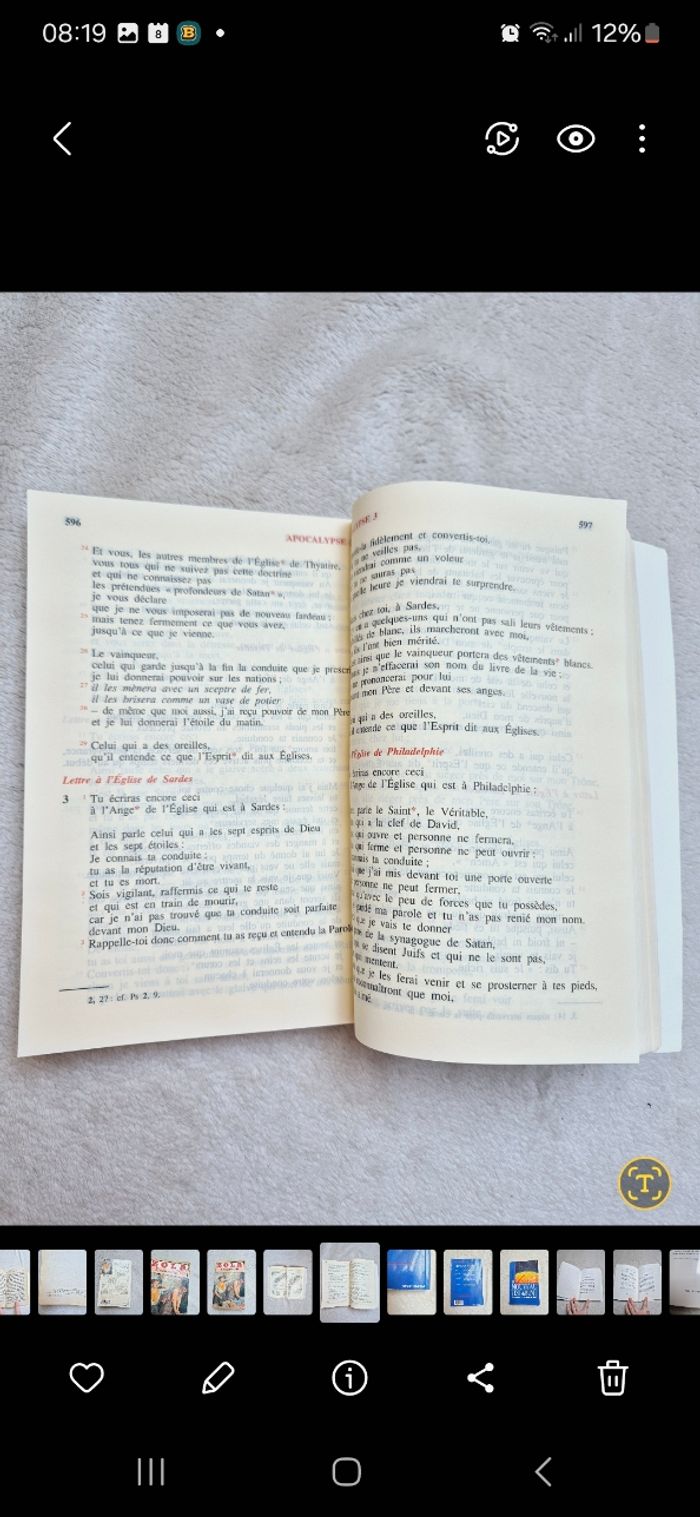 08:19
8
B
12%
596
APOCALYPSE
24 Et vous, les autres membres de l'Église* de Thyatire,
vous tous qui ne suivez pas cette doctrine
et qui ne connaissez pas
les prétendues « profondeurs de Satan* »,
je vous déclare
que je ne vous imposerai pas de nouveau fardeau ;
25 mais tenez fermement ce que vous avez,
jusqu'à ce que je vienne.
26 Le vainqueur,
celui qui garde jusqu'à la fin la conduite que je
je lui donnerai pouvoir sur les nations ;
27 il les mènera avec un sceptre de fer,
il les brisera comme un vase de potier
28 – de même que moi aussi, j'ai reçu pouvoir de mon Père
et je lui donnerai l'étoile du matin.
29 Celui qui a des oreilles,
qu'il entende ce que l'Esprit* dit aux Églises.
Lettre à l'Église de Sardes
3 1 Tu écriras encore ceci
à l'Ange* de l'Église qui est à Sardes :
Ainsi parle celui qui a les sept esprits de Dieu
et les sept étoiles :
Je connais ta conduite :
tu as la réputation d'être vivant,
et tu es mort.
2 Sois vigilant, raffermis ce qui te reste
et qui est en train de mourir,
car je n'ai pas trouvé que ta conduite soit parfaite
devant mon Dieu.
3 Rappelle-toi donc comment tu as reçu et entendu la
2, 27 : cf. Ps 2, 9.
3
597
fidèlement et convertis-toi.
ne veilles pas,
comme un voleur
ne sauras pas
heure je viendrai te surprendre.
chez toi, à Sardes,
a quelques-uns qui n'ont pas sali leurs vêtements ;
de blanc, ils marcheront avec moi,
ils l'ont bien mérité.
ainsi que le vainqueur portera des vêtements* blancs.
je n'effacerai son nom du livre de la vie ;
prononcerai pour lui
mon Père et devant ses anges.
qui a des oreilles,
entende ce que l'Esprit dit aux Églises.
de Philadelphie
encore ceci
de l'Église qui est à Philadelphie :
parle le Saint*, le Véritable,
qui a la clef de David,
qui ouvre et personne ne fermera,
qui ferme et personne ne peut ouvrir :
ta conduite ;
que j'ai mis devant toi une porte ouverte
personne ne peut fermer,
qu'avec le peu de forces que tu possèdes,
gardé ma parole et tu n'as pas renié mon nom.
que je vais te donner
de la synagogue de Satan,
se disent Juifs et qui ne le sont pas,
mentent.
que je les ferai venir et se prosterner à tes pieds,
que moi,
T
ZOLA
ZOLA